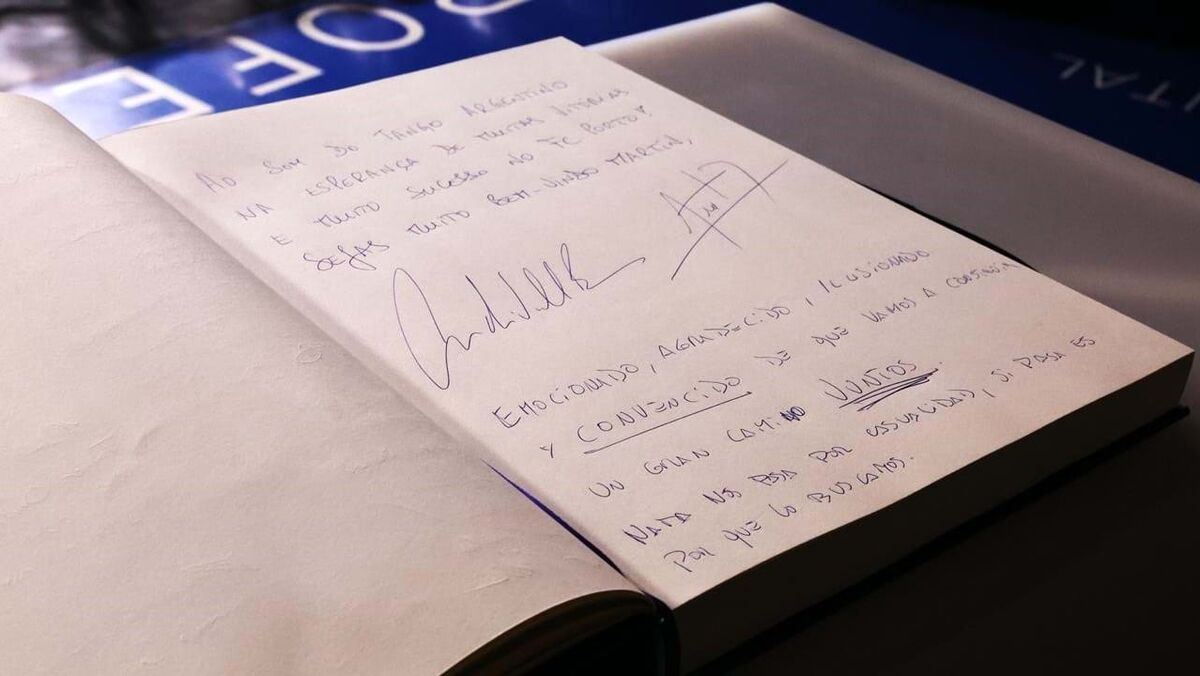 AO SOM DO TANGO ARGENTINO
NA ESPERANÇA DE MUITAS VITÓRIAS
E MUITO SUCESSO NO FC PORTO!
SEJAS MUITO BEM-VINDO MARTÍN,
EMOCIONADO, AGRADECIDO, ILUSIONADO
Y CONVENCIDO DE QUE VAMOS A CONSTRUIR
UN GRAN CAMINO JUNTOS.
NADA NOS PASA POR CASUALIDAD, SI PASA ES
POR QUE LO BUSCAMOS.